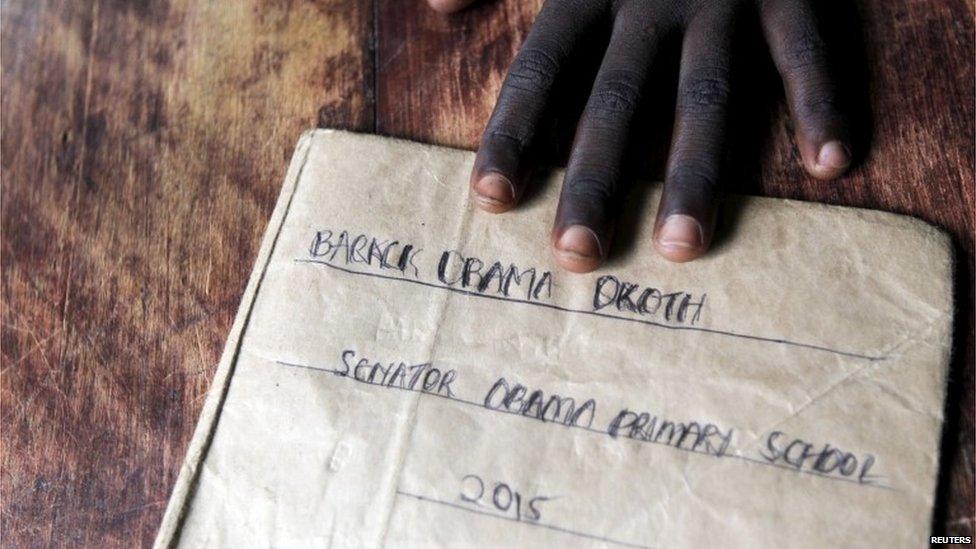 BARACK OBAMA OKOTH
SENATOR OBAMA PRIMARY SCHOOL
2015
REUTERS